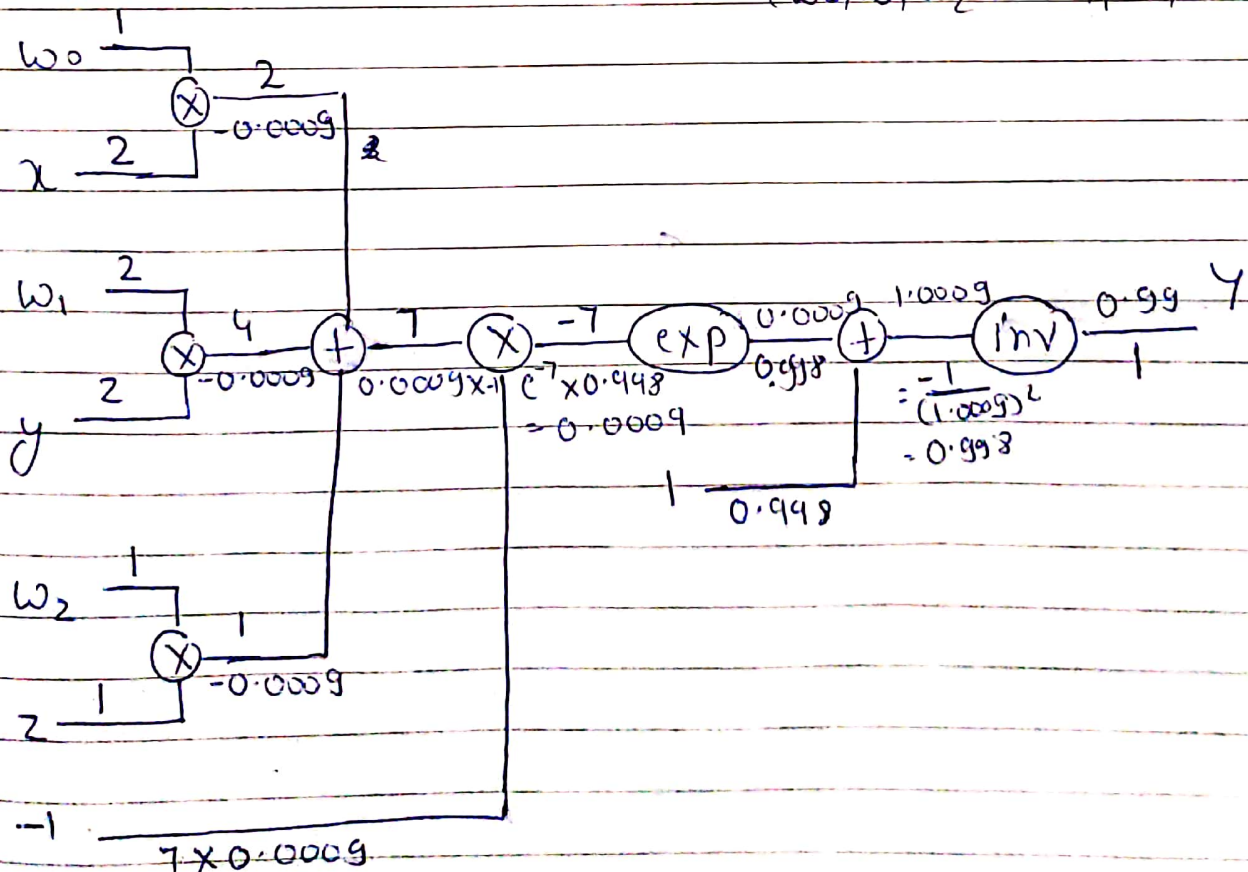 1
W0
2
X
-0.0009
2
x
2
W1
4
X
-0.0009
2
y
+
7
0.0009x-1
X
-7
e^-7 x 0.998
= 0.0009
exp
0.0009
0.998
+
1.0009
= -1/(1.0009)²
= 0.998
inv
0.99
Y
1
1
0.998
1
W2
1
X
-0.0009
1
z
-1
7 x 0.0009